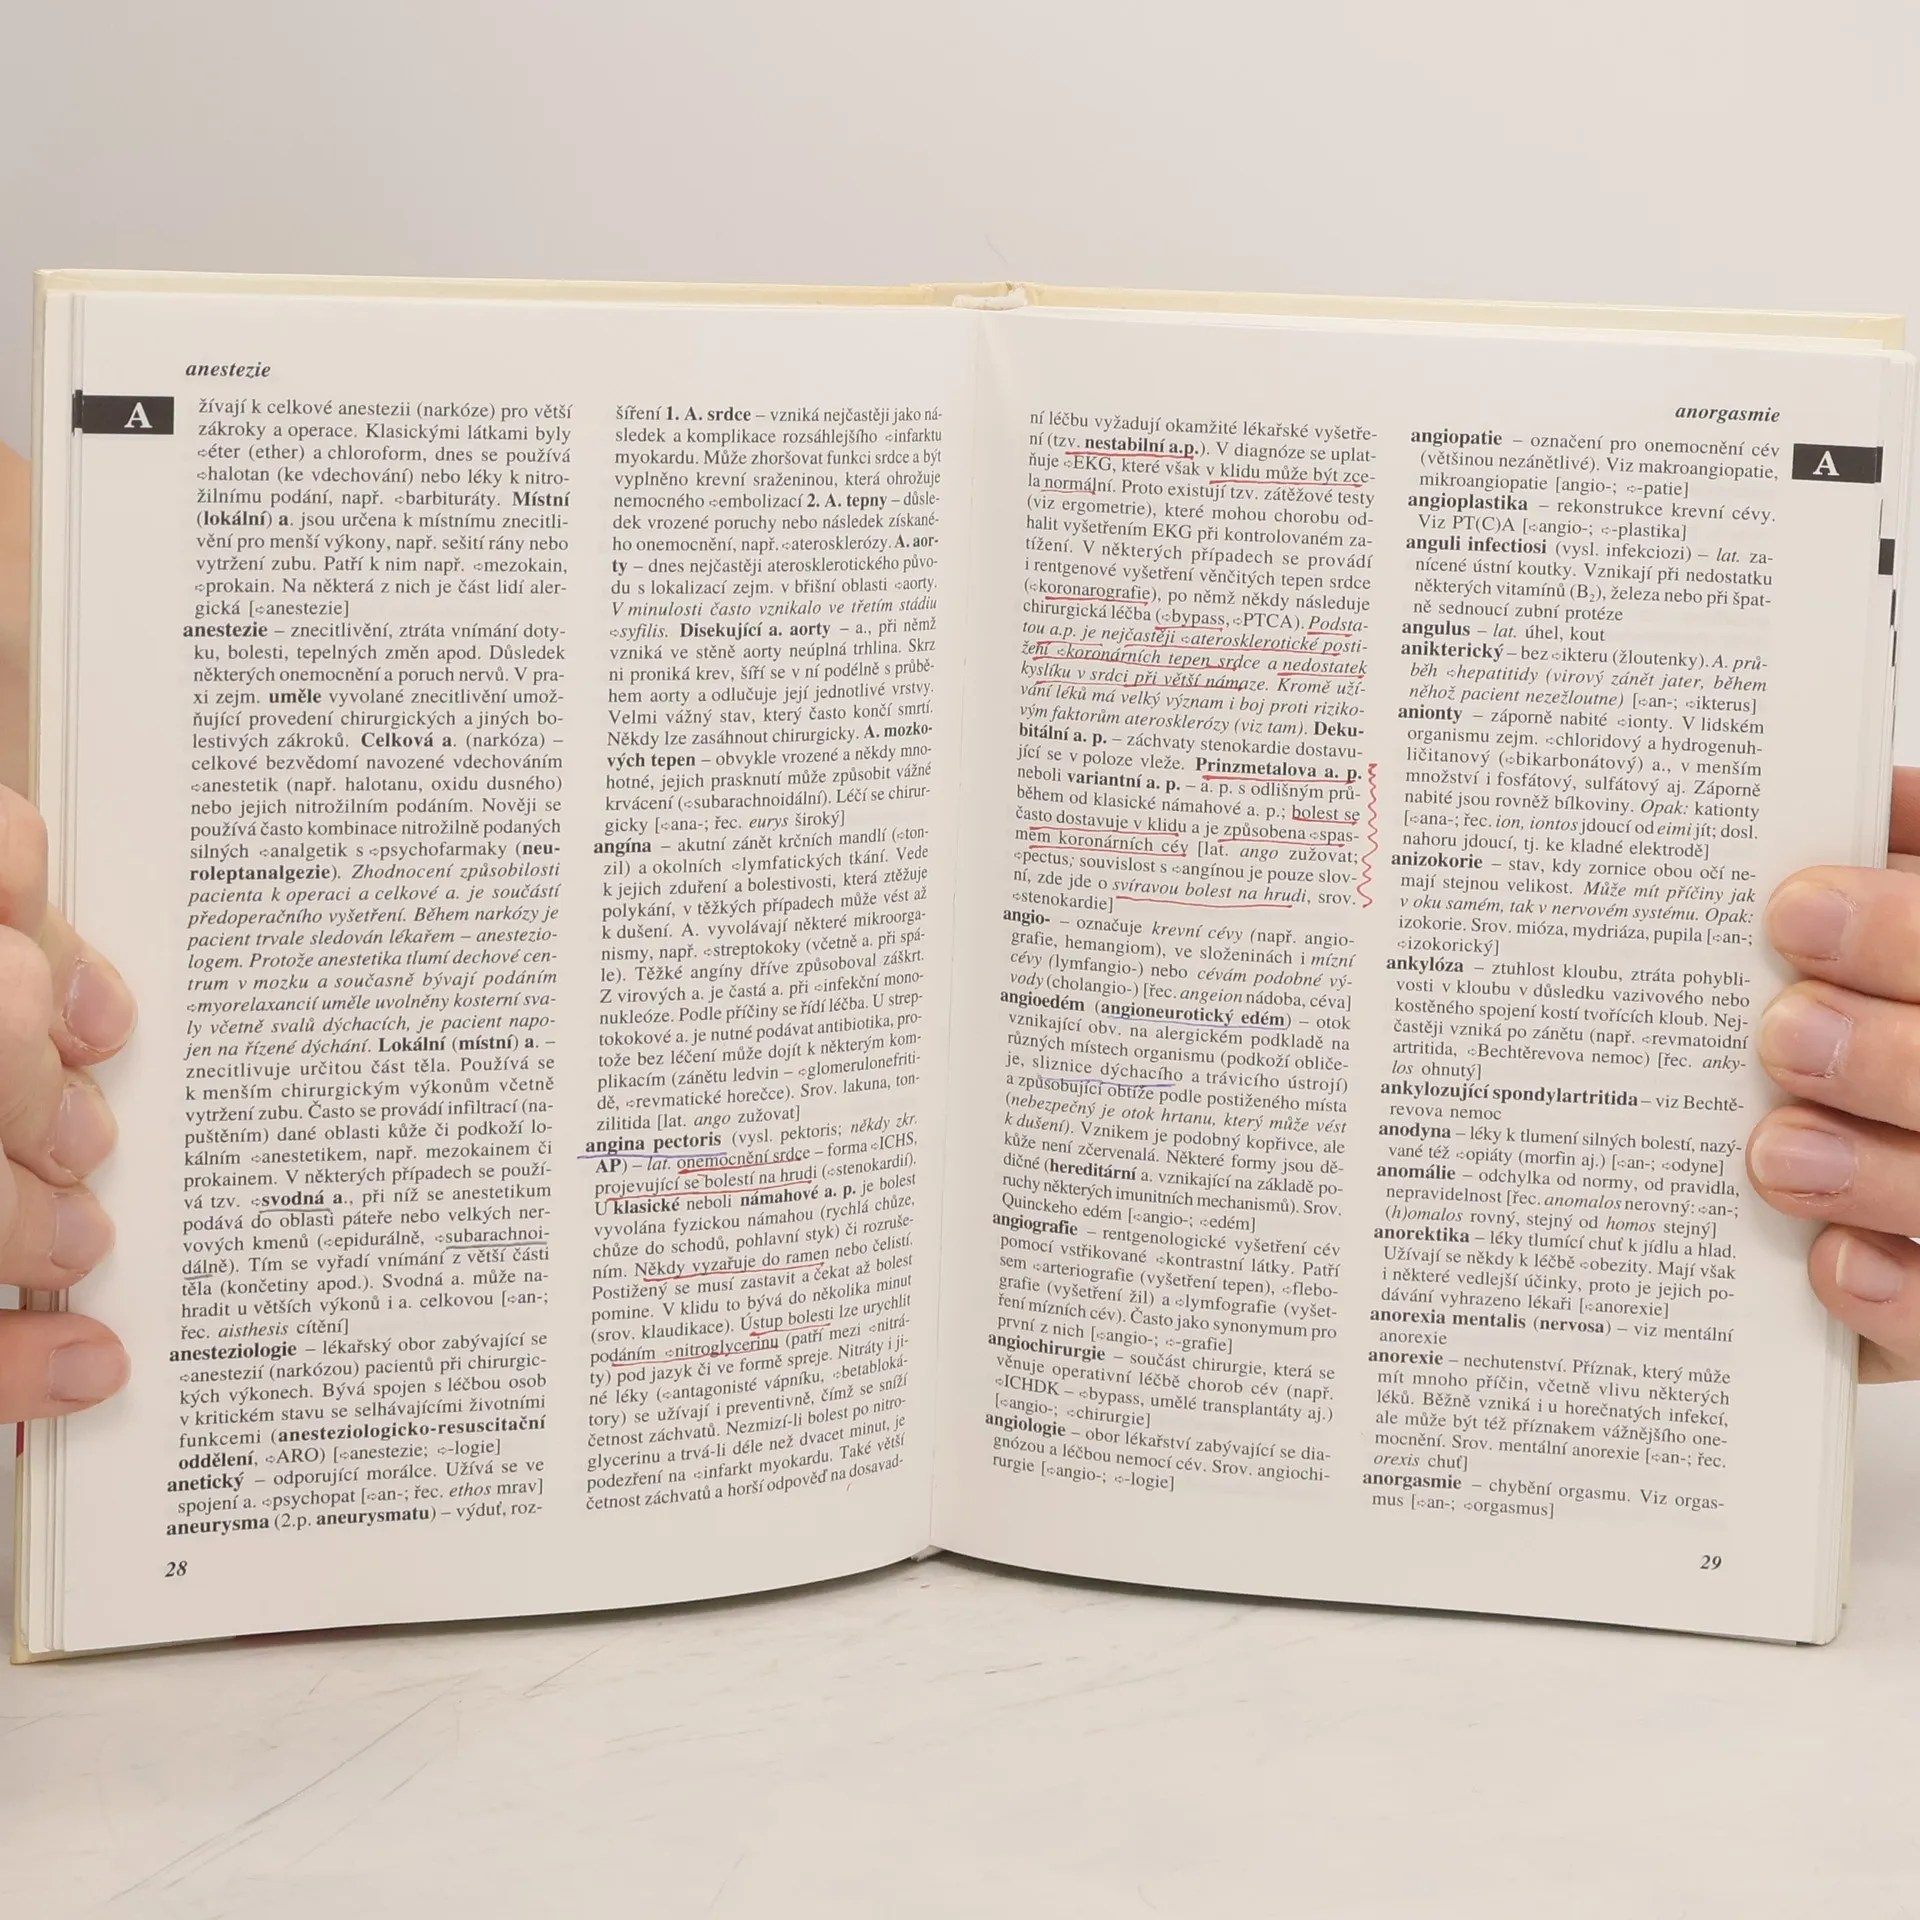 anestezie
A
žívají k celkové anestezii (narkóze) pro větší
zákroky a operace. Klasickými látkami byly
➪éter (ether) a chloroform, dnes se používá
➪halotan (ke vdechování) nebo léky k nitro-
žilnímu podání, např. ➪barbituráty. Místní
(lokální) a. jsou určena k místnímu znecitli-
vění pro menší výkony, např. sešití rány nebo
vytržení zubu. Patří k nim např. ➪mezokain,
➪prokain. Na některá z nich je část lidí aler-
gická [➪anestezie]
anestezie – znecitlivění, ztráta vnímání doty-
ku, bolesti, tepelných změn apod. Důsledek
některých onemocnění a poruch nervů. V pra-
xi zejm. uměle vyvolané znecitlivění umož-
ňující provedení chirurgických a jiných bo-
lestivých zákroků. Celková a. (narkóza) –
celkové bezvědomí navozené vdechováním
➪anestetik (např. halotanu, oxidu dusného)
nebo jejich nitrožilním podáním. Nověji se
používá často kombinace nitrožilně podaných
silných ➪analgetik s ➪psychofarmaky (neu-
roleptanalgezie). Zhodnocení způsobilosti
pacienta k operaci a celkové a. je součástí
předoperačního vyšetření. Během narkózy je
pacient trvale sledován lékařem – anestezio-
logem. Protože anestetika tlumí dechové cen-
trum v mozku a současně bývají podáním
➪myorelaxancií uměle uvolněny kosterní sva-
ly včetně svalů dýchacích, je pacient napo-
jen na řízené dýchání. Lokální (místní) a. –
znecitlivuje určitou část těla. Používá se
k menším chirurgickým výkonům včetně
vytržení zubu. Často se provádí infiltrací (na-
puštěním) dané oblasti kůže či podkoží lo-
kálním ➪anestetikem, např. mezokainem či
prokainem. V některých případech se použí-
vá tzv. ➪svodná a., při níž se anestetikum
podává do oblasti páteře nebo velkých ner-
vových kmenů (➪epidurálně, ➪subarachnoi-
dálně). Tím se vyřadí vnímání z větší části
těla (končetiny apod.). Svodná a. může na-
hradit u větších výkonů i a. celkovou [➪an-;
řec. aisthesis cítění]
anesteziologie – lékařský obor zabývající se
➪anestezií (narkózou) pacientů při chirurgic-
kých výkonech. Bývá spojen s léčbou osob
v kritickém stavu se selhávajícími životními
funkcemi (anesteziologicko-resuscitační
oddělení, ➪ARO) [➪anestezie; ➪-logie]
anetický – odporující morálce. Užívá se ve
spojení a. ➪psychopat [➪an-; řec. ethos mrav]
aneurysma (2.p. aneurysmatu) – výduť, roz-
šíření 1. A. srdce – vzniká nejčastěji jako ná-
sledek a komplikace rozsáhlejšího ➪infarktu
myokardu. Může zhoršovat funkci srdce a být
vyplněno krevní sraženinou, která ohrožuje
nemocného ➪embolizací 2. A. tepny – důsle-
dek vrozené poruchy nebo následek získané-
ho onemocnění, např. ➪aterosklerózy. A. aor-
ty – dnes nejčastěji aterosklerotického půvo-
du s lokalizací zejm. v břišní oblasti ➪aorty.
V minulosti často vznikalo ve třetím stádiu
➪syfilis. Disekující a. aorty – a., při němž
vzniká ve stěně aorty neúplná trhlina. Skrz
ni proniká krev, šíří se v ní podélně s průbě-
hem aorty a odlučuje její jednotlivé vrstvy.
Velmi vážný stav, který často končí smrtí.
Někdy lze zasáhnout chirurgicky. A. mozko-
vých tepen – obvykle vrozené a někdy mno-
hotné, jejich prasknutí může způsobit vážné
krvácení (➪subarachnoidální). Léčí se chirur-
gicky [➪ana-; řec. eurys široký]
angína – akutní zánět krčních mandlí (➪ton-
zil) a okolních ➪lymfatických tkání. Vede
k jejich zduření a bolestivosti, která ztěžuje
polykání, v těžkých případech může vést až
k dušení. A. vyvolávají některé mikroorga-
nismy, např. ➪streptokoky (včetně a. při spá-
le). Těžké angíny dříve způsoboval záškrt.
Z virových a. je častá a. při ➪infekční mono-
nukleóze. Podle příčiny se řídí léčba. U strep-
tokokové a. je nutné podávat antibiotika, pro-
tože bez léčení může dojít k některým kom-
plikacím (zánětu ledvin – ➪glomerulonefriti-
dě, ➪revmatické horečce). Srov. lakuna, ton-
zilitida [lat. ango zužovat]
angina pectoris (vysl. pektoris; někdy zkr.
AP) – lat. onemocnění srdce – forma ➪ICHS,
projevující se bolestí na hrudi (➪stenokardií).
U klasické neboli námahové a. p. je bolest
vyvolána fyzickou námahou (rychlá chůze,
chůze do schodů, pohlavní styk) či rozruše-
ním. Někdy vyzařuje do ramen nebo čelistí.
Postižený se musí zastavit a čekat až bolest
pomine. V klidu to bývá do několika minut
(srov. klaudikace). Ústup bolesti lze urychlit
podáním ➪nitroglycerinu (patří mezi ➪nitrá-
ty) pod jazyk či ve formě spreje. Nitráty i ji-
né léky (➪antagonisté vápníku, ➪betabloká-
tory) se užívají i preventivně, čímž se sníží
četnost záchvatů. Nezmizí-li bolest po nitro-
glycerinu a trvá-li déle než dvacet minut, je
podezření na ➪infarkt myokardu. Také větší
četnost záchvatů a horší odpověď na dosavad-
28
anorgasmie
A
ní léčbu vyžadují okamžité lékařské vyšetře-
ní (tzv. nestabilní a.p.). V diagnóze se uplat-
ňuje ➪EKG, které však v klidu může být zce-
la normální. Proto existují tzv. zátěžové testy
(viz ergometrie), které mohou chorobu od-
halit vyšetřením EKG při kontrolovaném za-
tížení. V některých případech se provádí
i rentgenové vyšetření věnčitých tepen srdce
(➪koronarografie), po němž někdy následuje
chirurgická léčba (➪bypass, ➪PTCA). Podsta-
tou a.p. je nejčastěji ➪aterosklerotické posti-
žení ➪koronárních tepen srdce a nedostatek
kyslíku v srdci při větší námaze. Kromě uží-
vání léků má velký význam i boj proti riziko-
vým faktorům aterosklerózy (viz tam). Deku-
bitální a. p. – záchvaty stenokardie dostavu-
jící se v poloze vleže. Prinzmetalova a. p.
neboli variantní a. p. – a. p. s odlišným prů-
během od klasické námahové a. p.; bolest se
často dostavuje v klidu a je způsobena ➪spas-
mem koronárních cév [lat. ango zužovat;
➪pectus; souvislost s ➪angínou je pouze slov-
ní, zde jde o svíravou bolest na hrudi, srov.
➪stenokardie]
angio- – označuje krevní cévy (např. angio-
grafie, hemangiom), ve složeninách i mízní
cévy (lymfangio-) nebo cévám podobné vý-
vody (cholangio-) [řec. angeion nádoba, céva]
angioedém (angioneurotický edém) – otok
vznikající obv. na alergickém podkladě na
různých místech organismu (podkoží obliče-
je, sliznice dýchacího a trávicího ústrojí)
a způsobující obtíže podle postiženého místa
(nebezpečný je otok hrtanu, který může vést
k dušení). Vznikem je podobný kopřivce, ale
kůže není zčervenalá. Některé formy jsou dě-
dičné (hereditární a. vznikající na základě po-
ruchy některých imunitních mechanismů). Srov.
Quinckeho edém [➪angio-; ➪edém]
angiografie – rentgenologické vyšetření cév
pomocí vstřikované ➪kontrastní látky. Patří
sem ➪arteriografie (vyšetření tepen), ➪flebo-
grafie (vyšetření žil) a ➪lymfografie (vyšet-
ření mízních cév). Často jako synonymum pro
první z nich [➪angio-; ➪-grafie]
angiochirurgie – součást chirurgie, která se
věnuje operativní léčbě chorob cév (např.
➪ICHDK – ➪bypass, umělé transplantáty aj.)
[➪angio-; ➪chirurgie]
angiologie – obor lékařství zabývající se dia-
gnózou a léčbou nemocí cév. Srov. angiochi-
rurgie [➪angio-; ➪-logie]
angiopatie – označení pro onemocnění cév
(většinou nezánětlivé). Viz makroangiopatie,
mikroangiopatie [angio-; ➪-patie]
angioplastika – rekonstrukce krevní cévy.
Viz PT(C)A [➪angio-; ➪-plastika]
anguli infectiosi (vysl. infekciozi) – lat. za-
nícené ústní koutky. Vznikají při nedostatku
některých vitamínů (B₂), železa nebo při špat-
ně sednoucí zubní protéze
angulus – lat. úhel, kout
anikterický – bez ➪ikteru (žloutenky). A. prů-
běh ➪hepatitidy (virový zánět jater, během
něhož pacient nezežloutne) [➪an-; ➪ikterus]
anionty – záporně nabité ➪ionty. V lidském
organismu zejm. ➪chloridový a hydrogenuh-
ličitanový (➪bikarbonátový) a., v menším
množství i fosfátový, sulfátový aj. Záporně
nabité jsou rovněž bílkoviny. Opak: kationty
[➪ana-; řec. ion, iontos jdoucí od eimi jít; dosl.
nahoru jdoucí, tj. ke kladné elektrodě]
anizokorie – stav, kdy zornice obou očí ne-
mají stejnou velikost. Může mít příčiny jak
v oku samém, tak v nervovém systému. Opak:
izokorie. Srov. mióza, mydriáza, pupila [➪an-;
➪izokorický]
ankylóza – ztuhlost kloubu, ztráta pohybli-
vosti v kloubu v důsledku vazivového nebo
kostěného spojení kostí tvořících kloub. Nej-
častěji vzniká po zánětu (např. ➪revmatoidní
artritida, ➪Bechtěrevova nemoc) [řec. anky-
los ohnutý]
ankylozující spondylartritida – viz Bechtě-
revova nemoc
anodyna – léky k tlumení silných bolestí, nazý-
vané též ➪opiáty (morfin aj.) [➪an-; ➪odyne]
anomálie – odchylka od normy, od pravidla,
nepravidelnost [řec. anomalos nerovný: ➪an-;
(h)omalos rovný, stejný od homos stejný]
anorektika – léky tlumící chuť k jídlu a hlad.
Užívají se někdy k léčbě ➪obezity. Mají však
i některé vedlejší účinky, proto je jejich po-
dávání vyhrazeno lékaři [➪anorexie]
anorexia mentalis (nervosa) – viz mentální
anorexie
anorexie – nechutenství. Příznak, který může
mít mnoho příčin, včetně vlivu některých
léků. Běžně vzniká i u horečnatých infekcí,
ale může být též příznakem vážnějšího one-
mocnění. Srov. mentální anorexie [➪an-; řec.
orexis chuť]
anorgasmie – chybění orgasmu. Viz orgas-
mus [➪an-; ➪orgasmus]
29